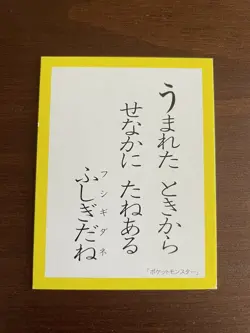 うまれた ときから
せなかに たねある
ふしぎだね
フシギダネ
「ポケットモンスター」